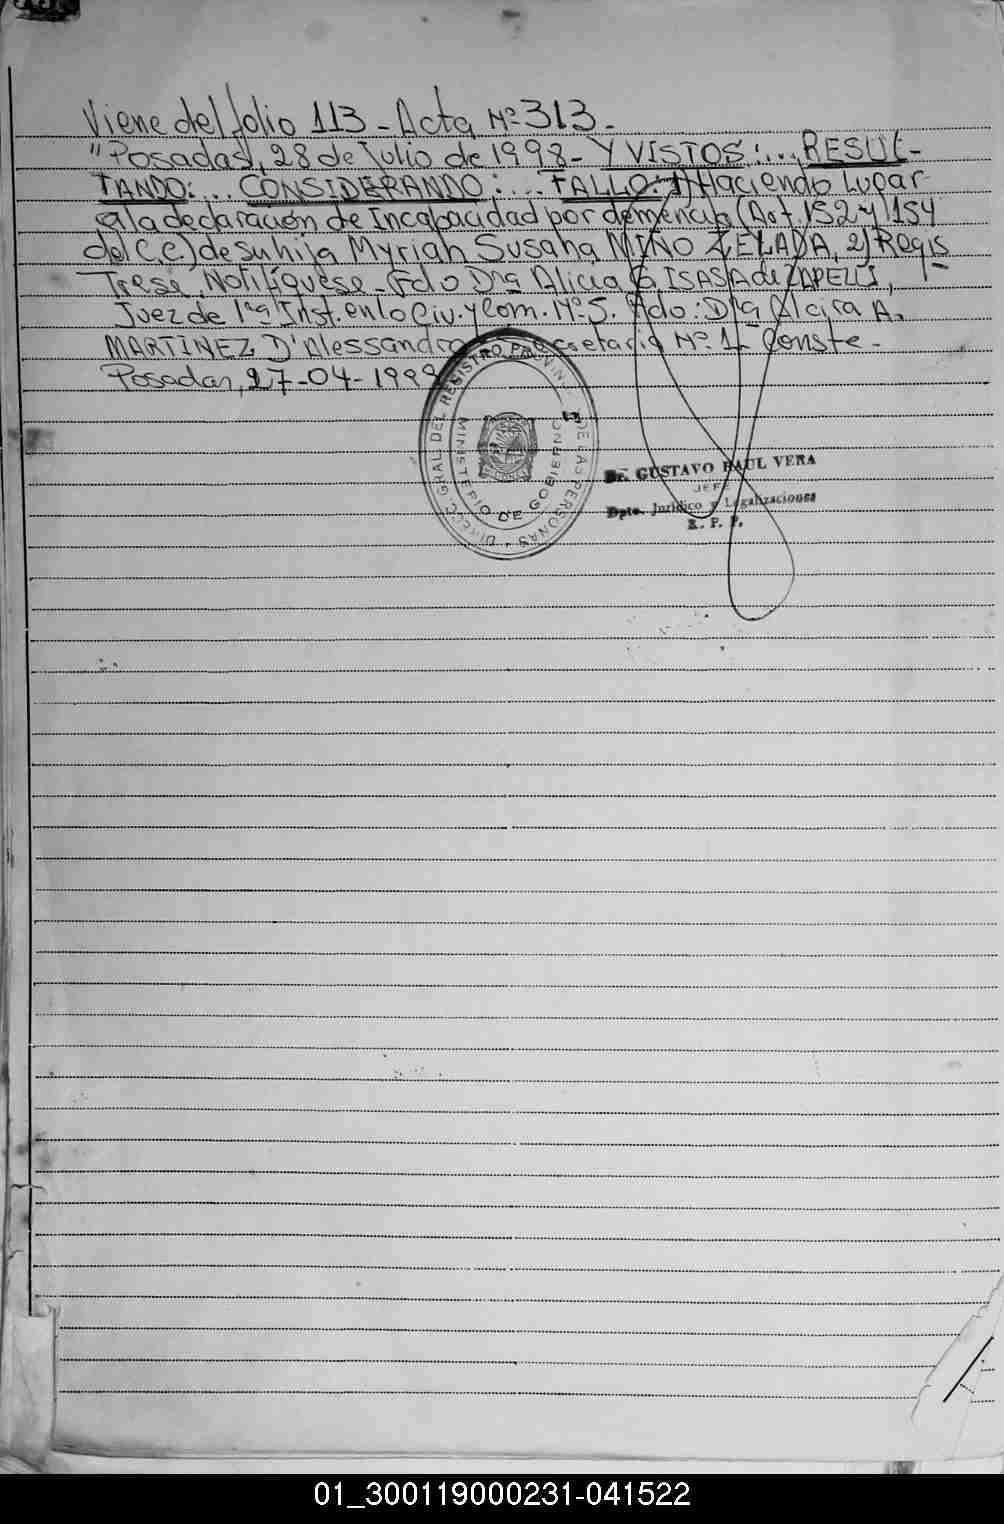 Viene del folio 113 - Acta Nº 313 -
"Posadas, 28 de Julio de 1998 - Y VISTOS:... RESUL-
TANDO:... CONSIDERANDO:... FALLO: 1) Haciendo lugar
a la declaración de Incapacidad por demencia (Art. 152 y 154
del C.C.) de su hija Myriah Susana MIÑO ZELADA, 2) Regís
Trese, Notifíquese - Fdo Dra Alicia G. ISASA de ZAPELLI,
Juez de 1ra Inst. en lo Civ. y Com. Nº 5. Fdo: Dra Alcira A.
MARTINEZ D'Alessandro Secretaria Nº 1 - Conste -
Posadas, 27-04-1999
DIRECC. GRAL DEL REGISTRO PROVINCIAL DE LAS PERSONAS
MINISTERIO DE GOBIERNO
Dr. GUSTAVO RAUL VERA
JEFE
Dpto. Jurídico y Legalizaciones
R. P. P.
01_300119000231-041522